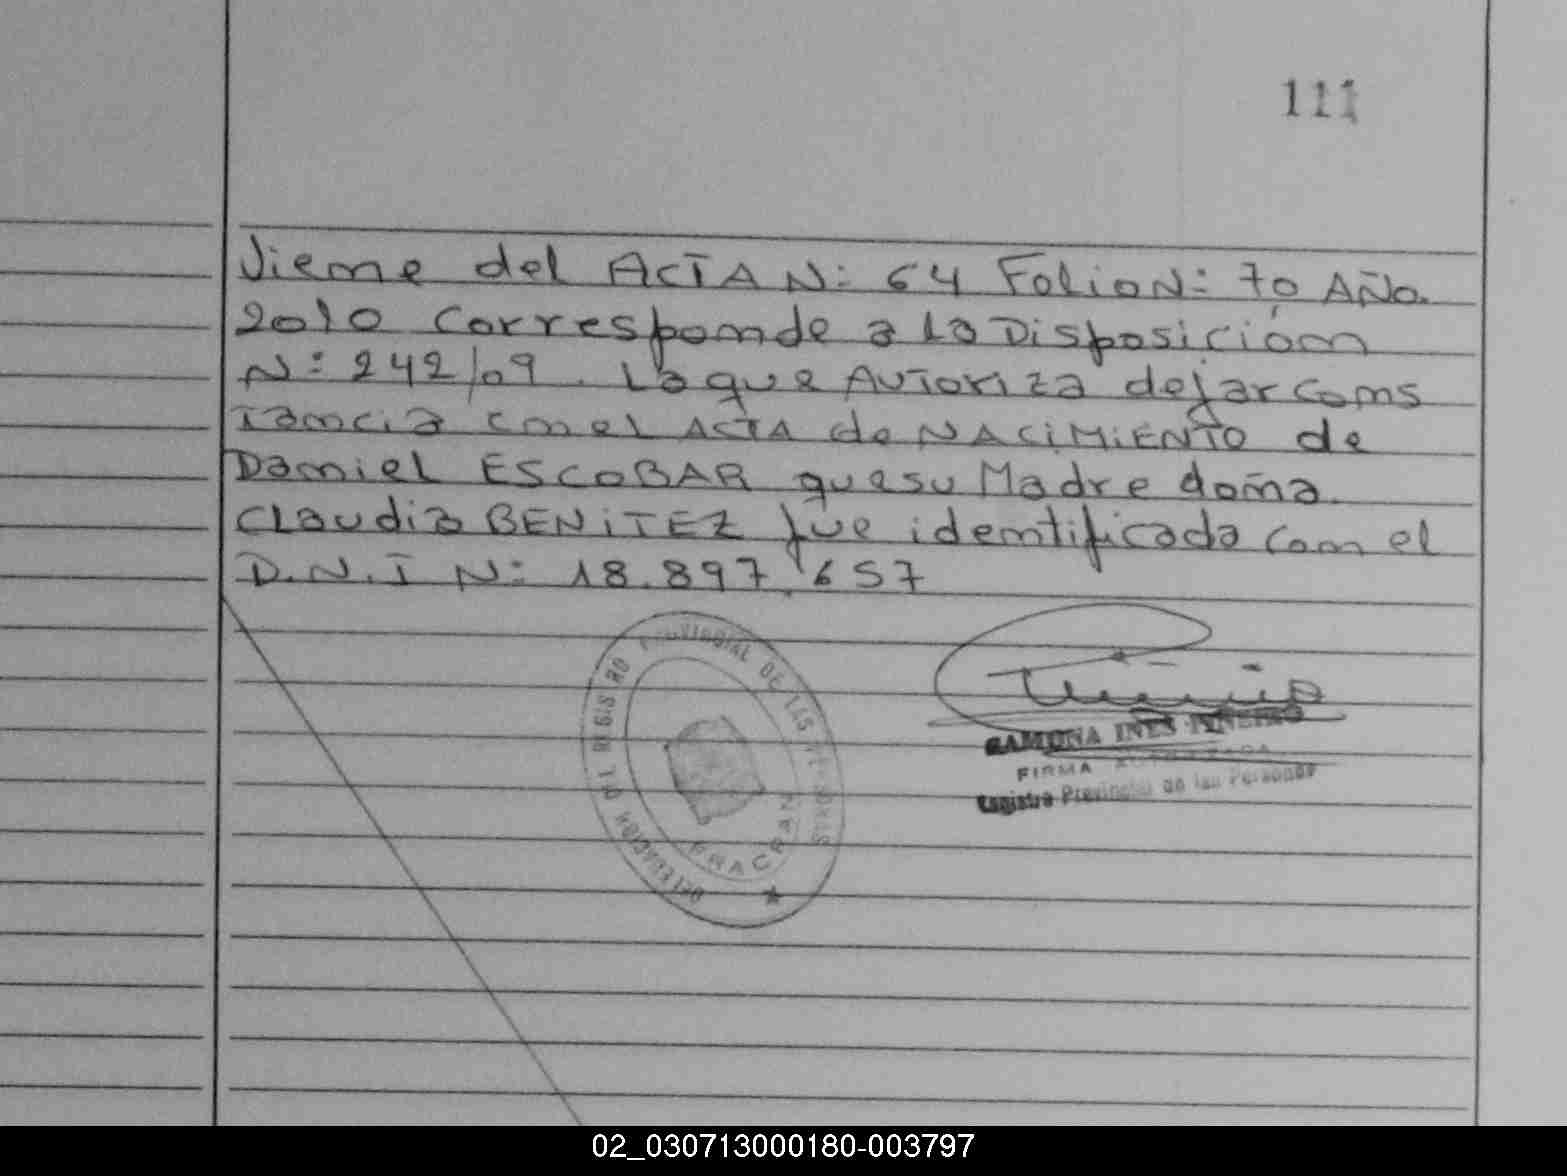 111
Viene del ACTA N: 64 Folio N: 70 AÑo.
2010 corresponde a la Disposición
N: 242/09. La que AUTORIZA dejar cons
tancia en el ACTA de NACIMIENTO de
Daniel ESCOBAR que su Madre doña
CLaudia BENITEZ fue identificada con el
D.N.I N: 18.897.657
DELEGACION DEL REGISTRO PROVINCIAL DE LAS PERSONAS
RAMONA INES PIÑEIRO
FIRMA AUTORIZADA
Registro Provincial de las Personas
02_030713000180-003797